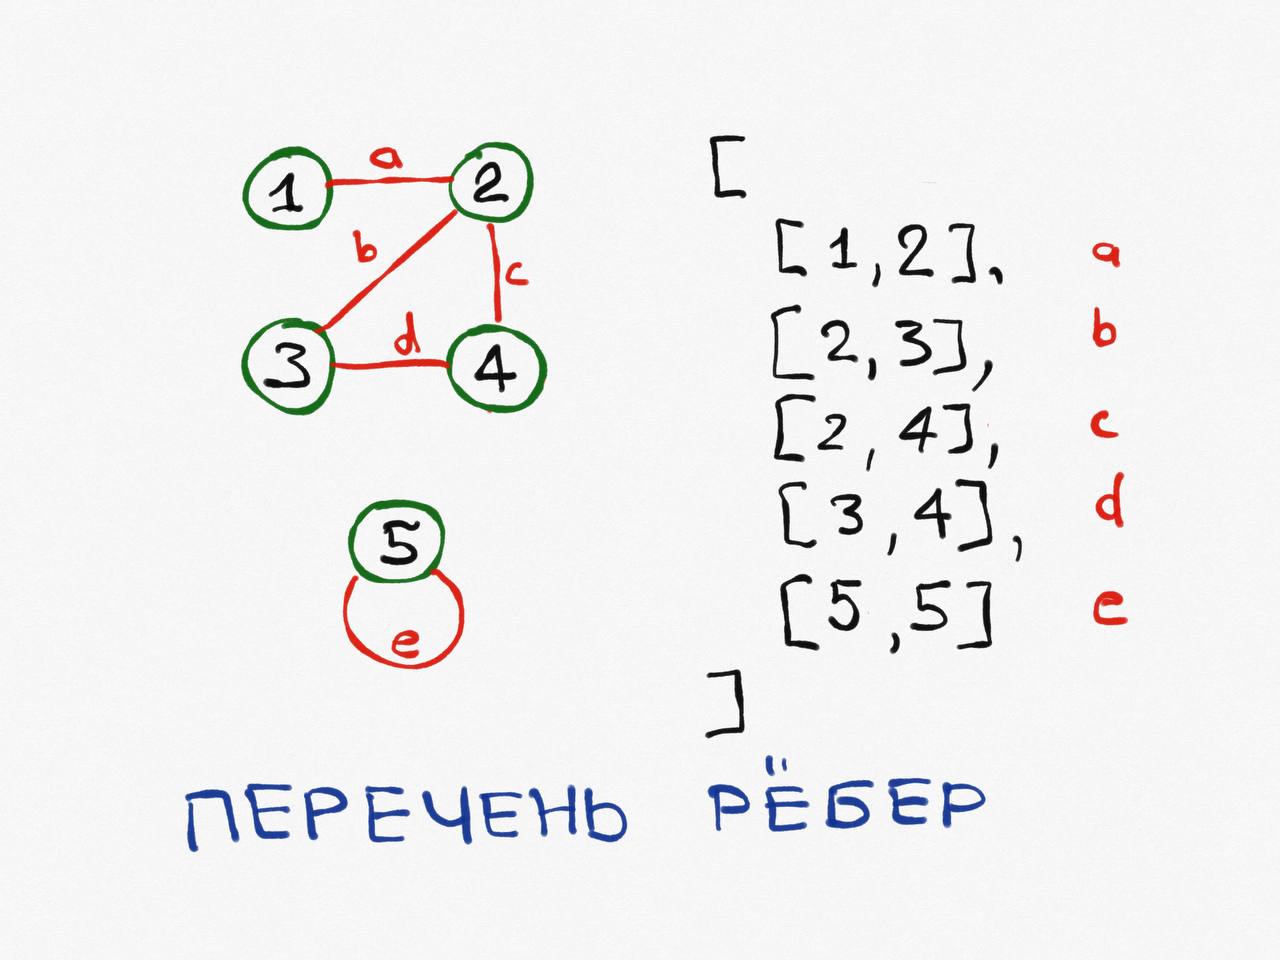 a
1
2
b
c
d
3
4
5
e
[
[1,2], a
[2,3], b
[2,4], c
[3,4], d
[5,5] e
]
ПЕРЕЧЕНЬ РЁБЕР